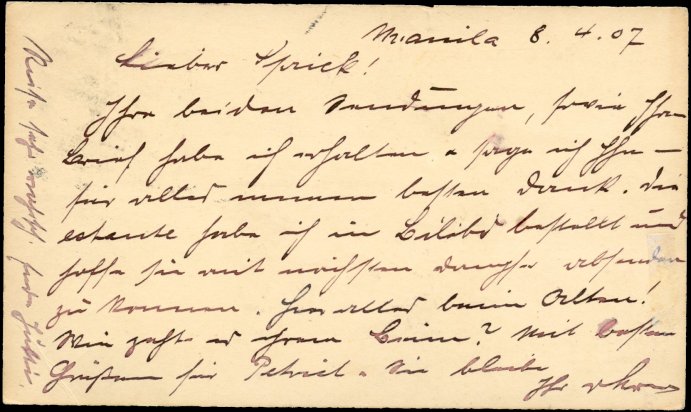 Manila 8. 4. 07
Lieber Sprick!
Ihre beiden Sendungen, sowie Ihren
Brief habe ich erhalten u sage ich Ihnen
für alles meinen besten Dank. Die
habe ich in Bilibid bestellt und
hoffe sie mit nächsten Dampfer absenden
zu können. Hier alles beim Alten!
Wie geht es Ihrem Bein? Mit besten
Grüßen für Petriet u Sie bleibe
Ihr